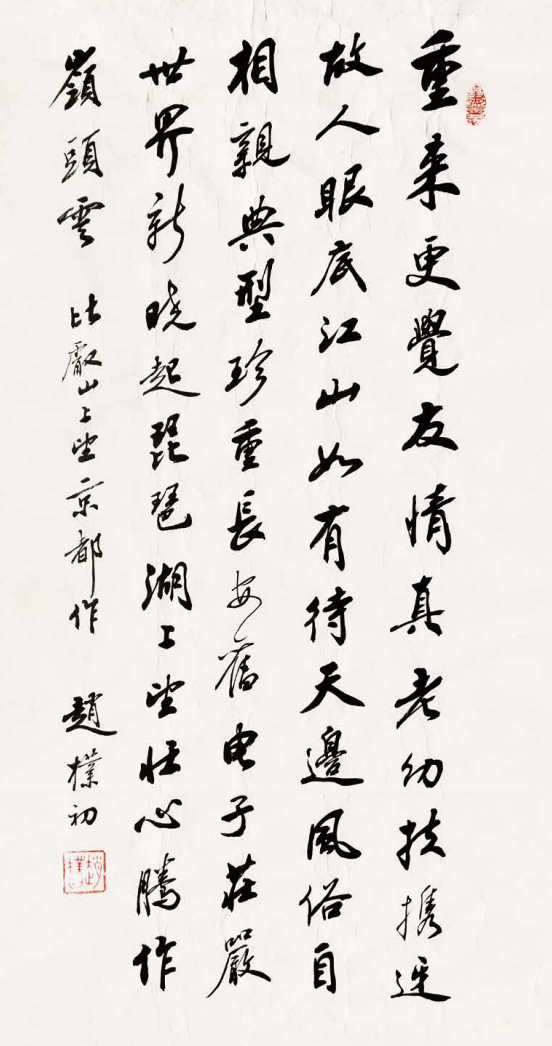 重来更覺友情真老幼扶携迎
故人眼底江山如有待天邊風俗自
相親典型珍重長安舊电子莊嚴
世界新晓起琵琶湖上望壮心騰作
嶺頭雲
比叡山上望京都作
趙樸初